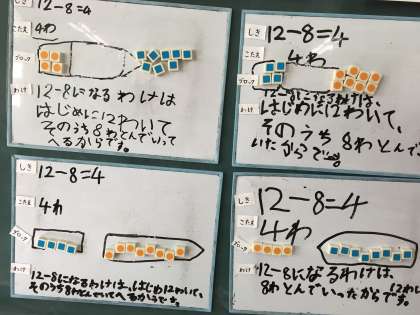 しき
12-8=4
こたえ
4わ
ブロック
わけ
12-8になるわけは
はじめに12わいて
そのうち8わとんでいって
へるからです。
しき
12-8=4
こたえ
4わ
ブロック
わけ
12-8になるわけは、
はじめに12わいて、
そのうち 8わとんで
いたからです。
しき
12-8=4
こたえ
4わ
ブロック
わけ
12-8になるわけは、はじめ12わいて、
そのうち8わとんでいてへるからです。
しき
12-8=4
こたえ
4わ
ブロック
わけ
12-8になるわけは、
8わとんでいったからです。